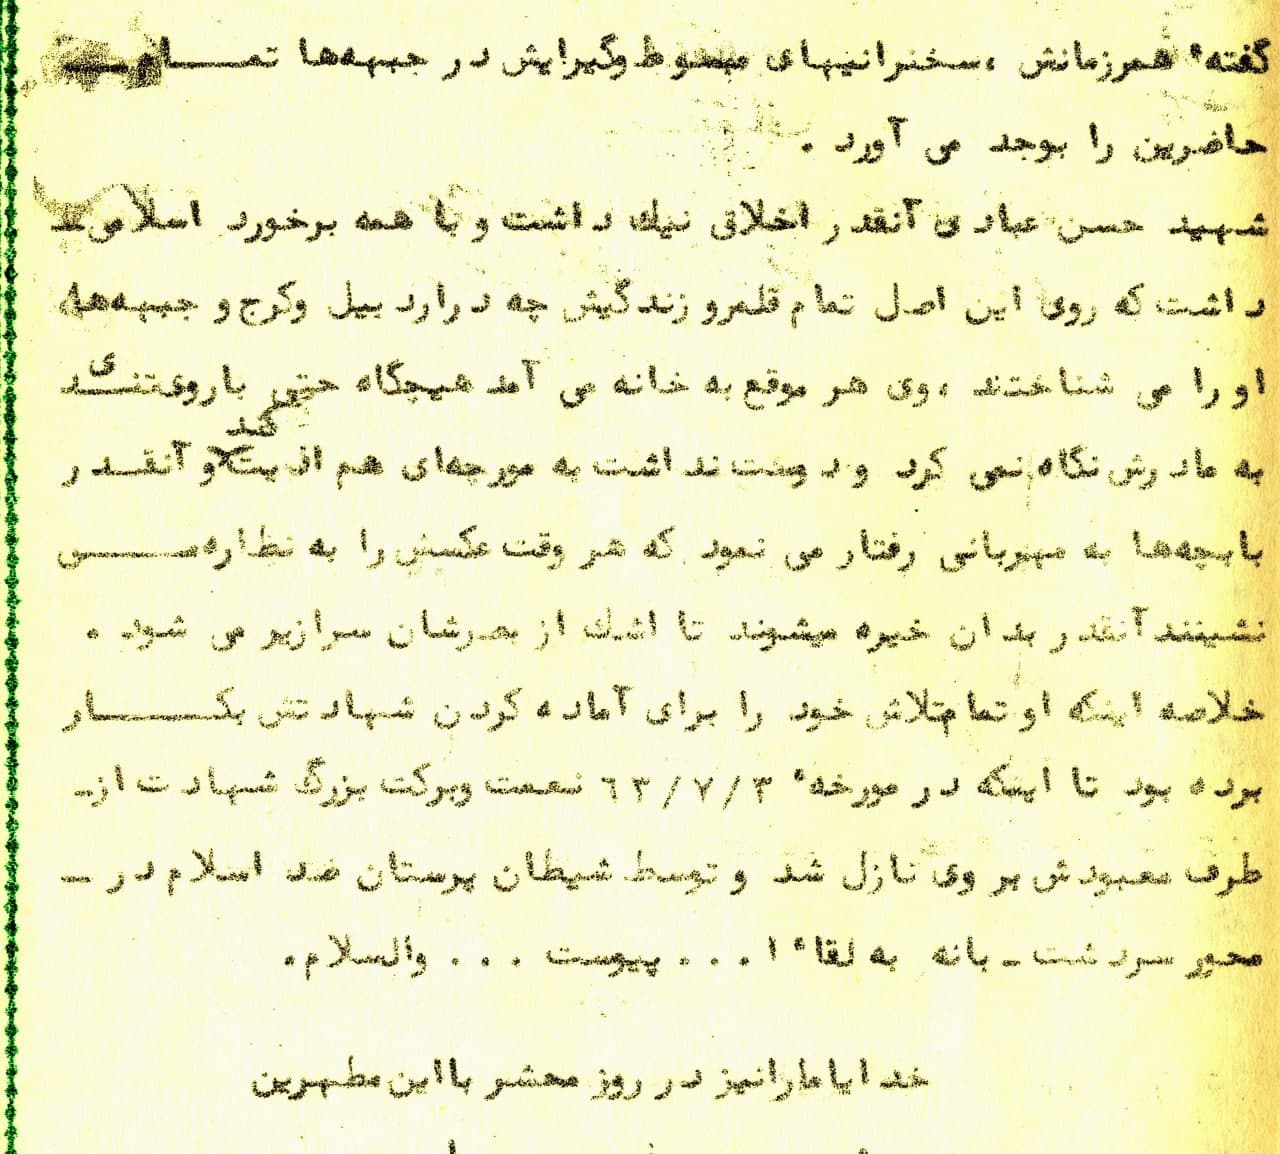 گفتهٔ همرزمانش ،سخنرانیهای مبسوط وگیرایش در جبهه‌ها تمام
حاضرین را بوجد می آورد .
شهید حسن عبادی آنقدر اخلاق نیك داشت و با همه برخورد اسلامی
داشت که روی این اصل تمام قلمرو زندگیش چه در اردبیل وکرج و جبهه‌ها
او را می شناختند ،وی هر موقع به خانه می آمد هیچگاه حتی باروی تندی
به مادرش نگاه نمی کرد ودوست نداشت به مورچه‌ای هم اذیت کند و آنقدر
بابچه‌ها به مهربانی رفتار می نمود که هر وقت عکسش را به نظاره می
نشینند آنقدر بدان خیره میشوند تا اشك از بصرشان سرازیر می شود .
خلاصه اینکه او تمام تلاش خود را برای آماده کردن شهادتش بکار
برده بود تا اینکه در مورخهٔ ٦٣/٧/٣ نعمت وبرکت بزرگ شهادت از-
طرف معبودش بر وی نازل شد و توسط شیطان پرستان ضد اسلام در -
محور سردشت - بانه به لقاء ا . . . پیوست . . . والسلام.
خدایا مارانیز در روز محشر بااین مطهرین